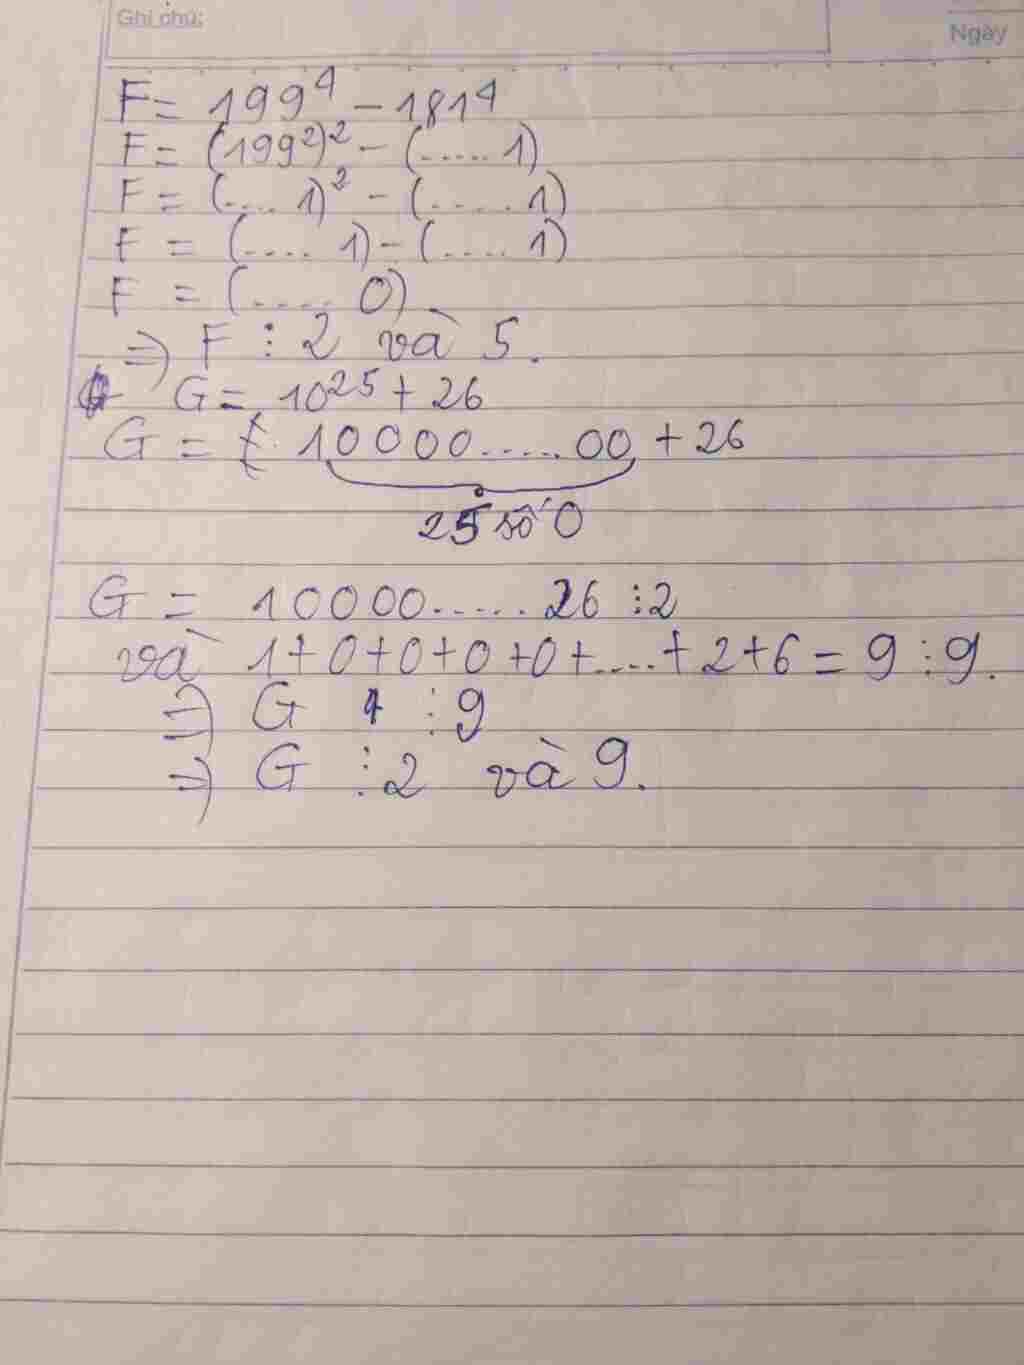 Ghi chú:
Ngày
F = 199⁴ - 181⁴
F = (199²)² - (.....1)
F = (.... 1)² - (.....1)
F = (.... 1) - (.... 1)
F = (..... 0)
=> F ⋮ 2 và 5.
G = 10²⁵ + 26
G = 10000.....00 + 26
25 số 0
G = 10000.....26 ⋮ 2
và 1+0+0+0+0+....+2+6 = 9 ⋮ 9.
=> G ⋮ 9
=> G ⋮ 2 và 9.